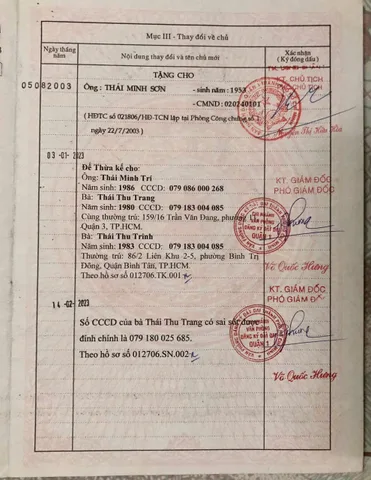 Mục III - Thay đổi về chủ
Ngày tháng năm
Nội dung thay đổi và tên chủ mới
Xác nhận
(Ký đóng dấu)
TẶNG CHO
05082003
Ông : THÁI MINH SƠN - sinh năm : 1953
- CMND : 020240101
( HĐTC số 021806/HĐ-TCN lập tại Phòng Công chứng số
ngày 22/7/2003 )
KT. CHỦ TỊCH
CHỦ TỊCH
03-01-2023
Để Thừa kế cho:
Ông: Thái Minh Trí
Năm sinh: 1986 CCCD: 079 086 000 268
Bà: Thái Thu Trang
Năm sinh: 1980 CCCD: 079 183 004 085
Cùng thường trú: 159/16 Trần Văn Đang, phường
Quận 3, TP.HCM.
Bà: Thái Thu Trinh
Năm sinh: 1983 CCCD: 079 183 004 085
Thường trú: 86/2 Liên Khu 2-5, phường Bình Trị
Đông, Quận Bình Tân, TP.HCM.
Theo hồ sơ số 012706.TK.001
KT. GIÁM ĐỐC
PHÓ GIÁM ĐỐC
CHI NHÁNH
VĂN PHÒNG
ĐĂNG KÝ ĐẤT ĐAI
QUẬN 1
Võ Quốc Hưng
14-02-2023
Số CCCD của bà Thái Thu Trang có sai sót được
đính chính là 079 180 025 685.
Theo hồ sơ số 012706.SN.002
KT. GIÁM ĐỐC
PHÓ GIÁM ĐỐC
CHI NHÁNH
VĂN PHÒNG
ĐĂNG KÝ ĐẤT ĐAI
QUẬN 1
Võ Quốc Hưng